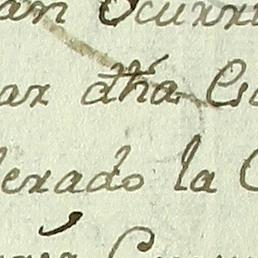 an Ocurri
ar dha Es
erado la C